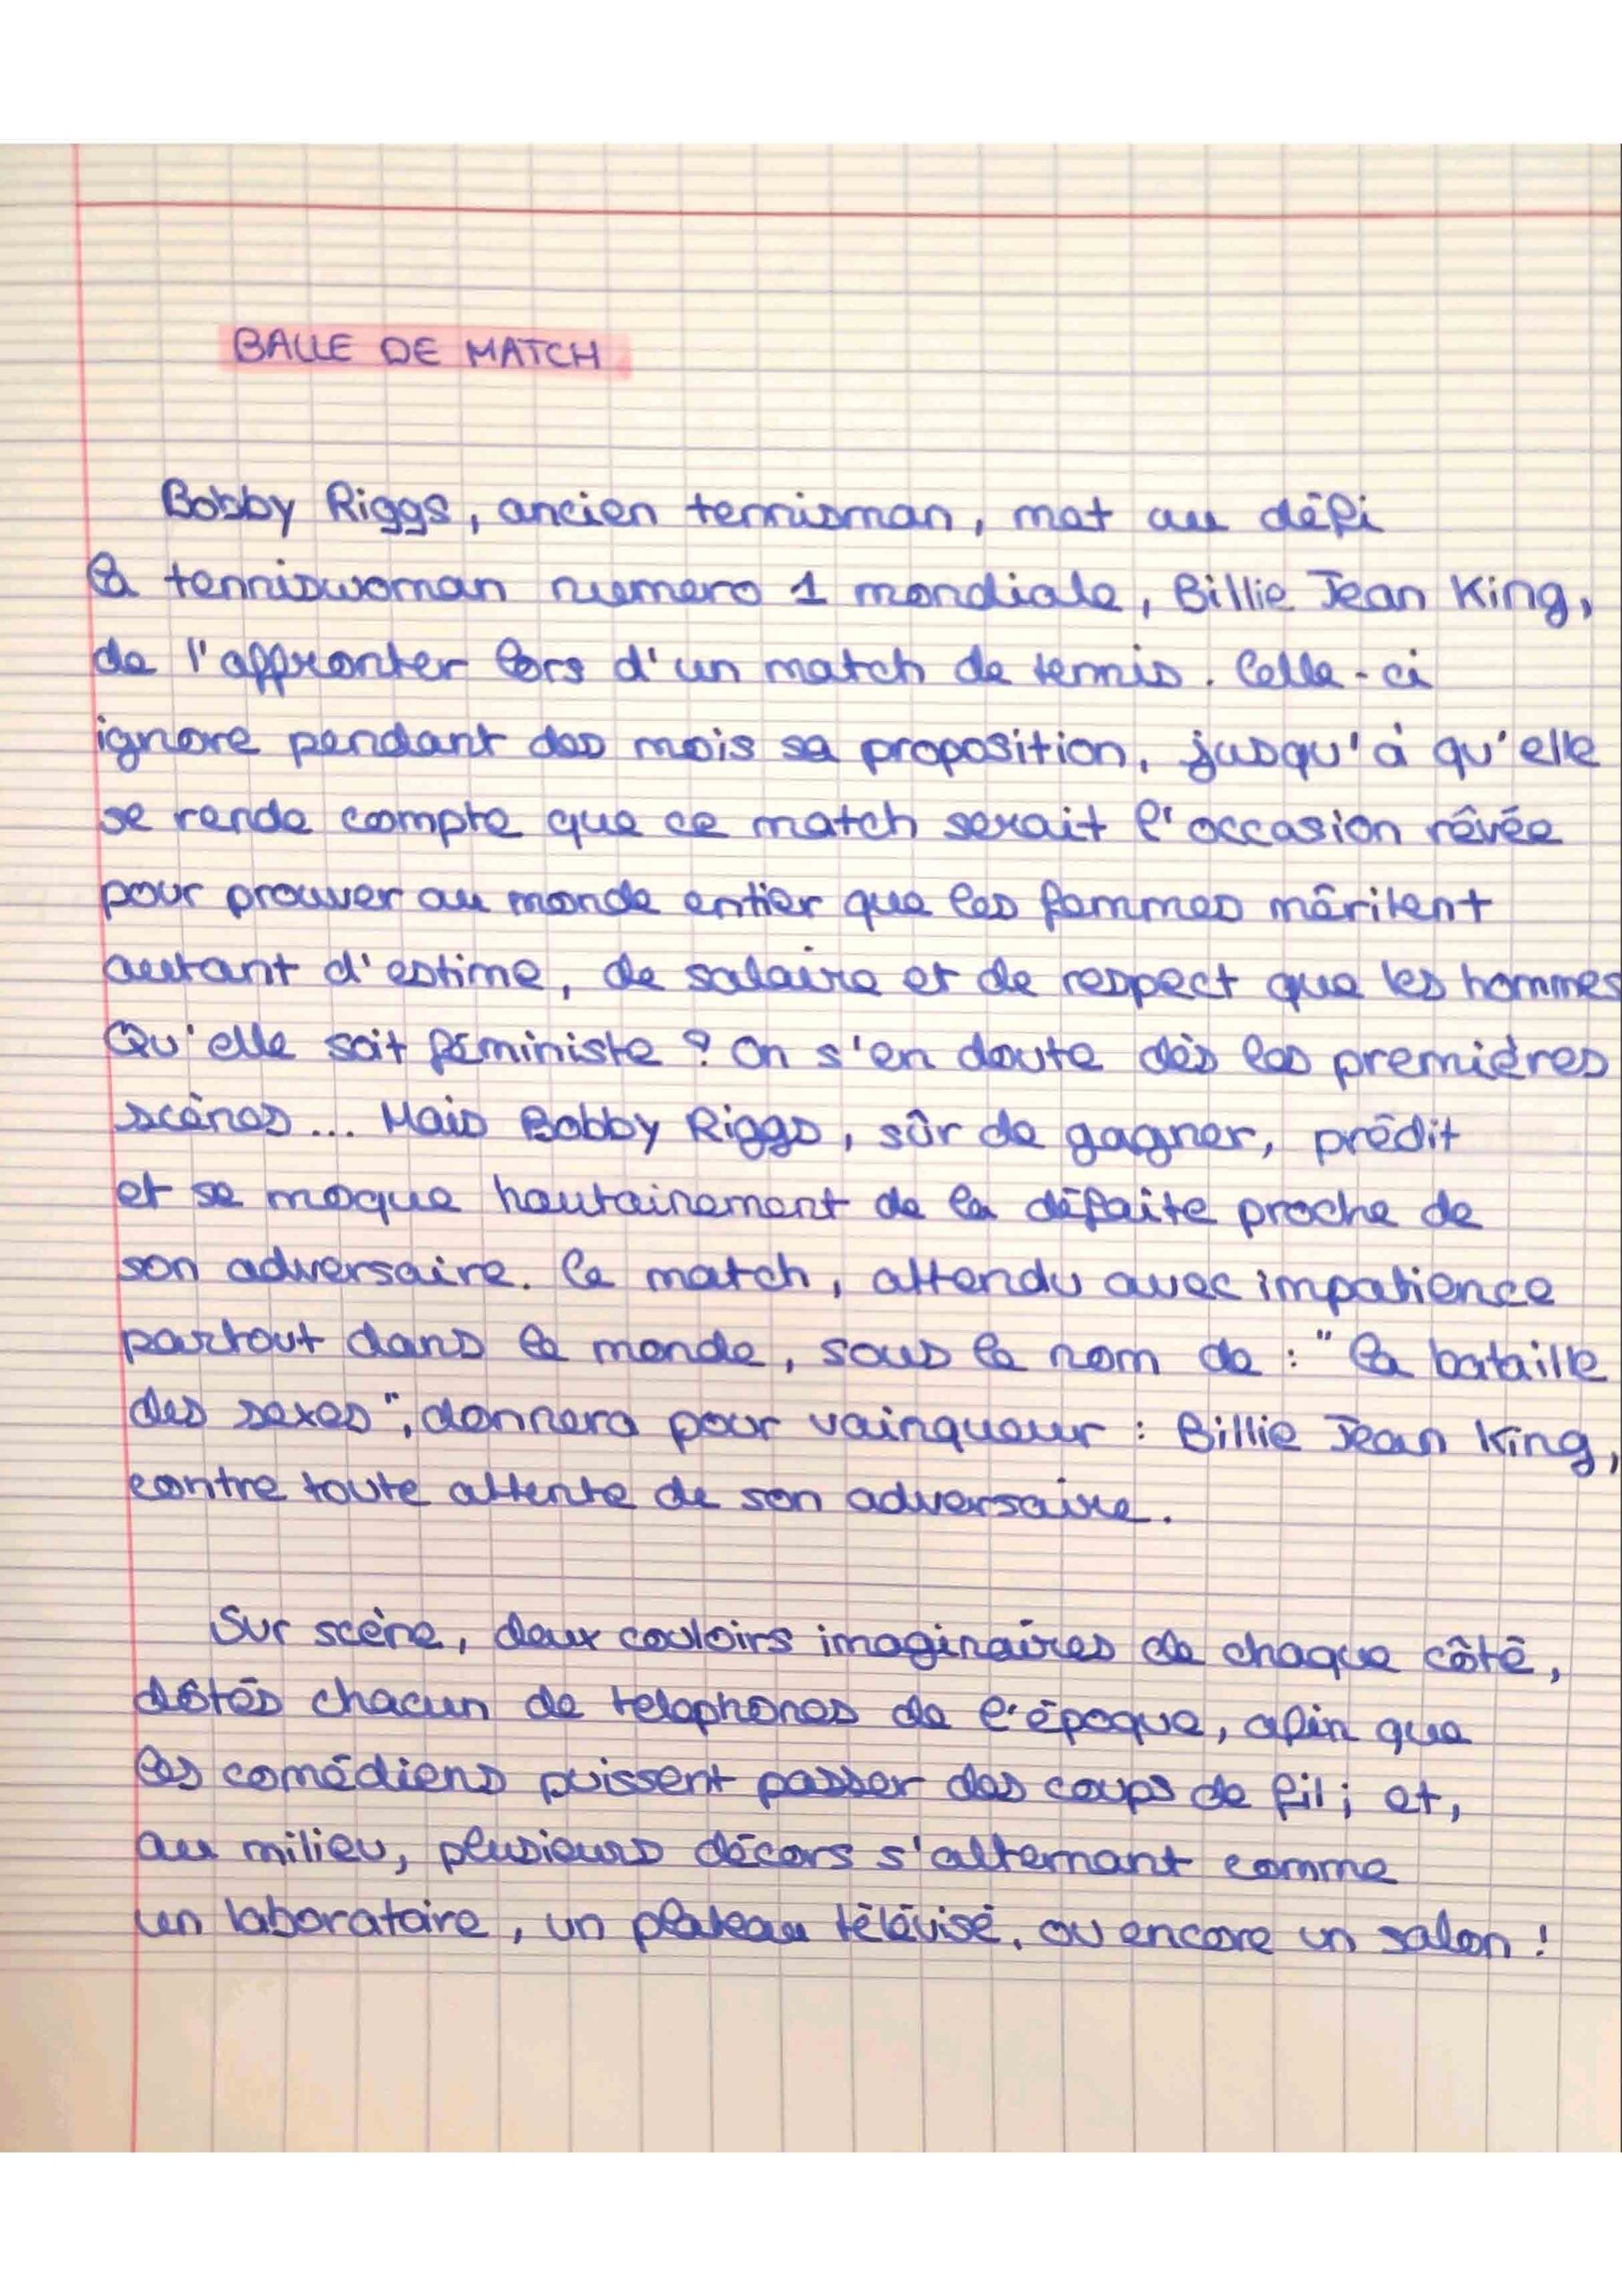 BALLE DE MATCH
Bobby Riggs, ancien tennisman, met au défi
la tenniswoman numero 1 mondiale, Billie Jean King,
de l'affronter lors d'un match de tennis. Celle-ci
ignore pendant des mois sa proposition, jusqu'à qu'elle
se rende compte que ce match serait l'occasion rêvée
pour prouver au monde entier que les femmes méritent
autant d'estime, de salaire et de respect que les hommes
Qu'elle soit féministe ? On s'en doute dès les premières
scènes... Mais Bobby Riggs, sûr de gagner, prédit
et se moque hautainement de la défaite proche de
son adversaire. Ce match, attendu avec impatience
partout dans le monde, sous le nom de : "la bataille
des sexes", donnera pour vainqueur : Billie Jean King,
contre toute attente de son adversaire.
Sur scène, deux couloirs imaginaires de chaque côté,
dotés chacun de telephones de l'époque, afin que
les comédiens puissent passer des coups de fil ; et,
au milieu, plusieurs décors s'alternant comme
un laboratoire, un plateau télévisé, ou encore un salon !